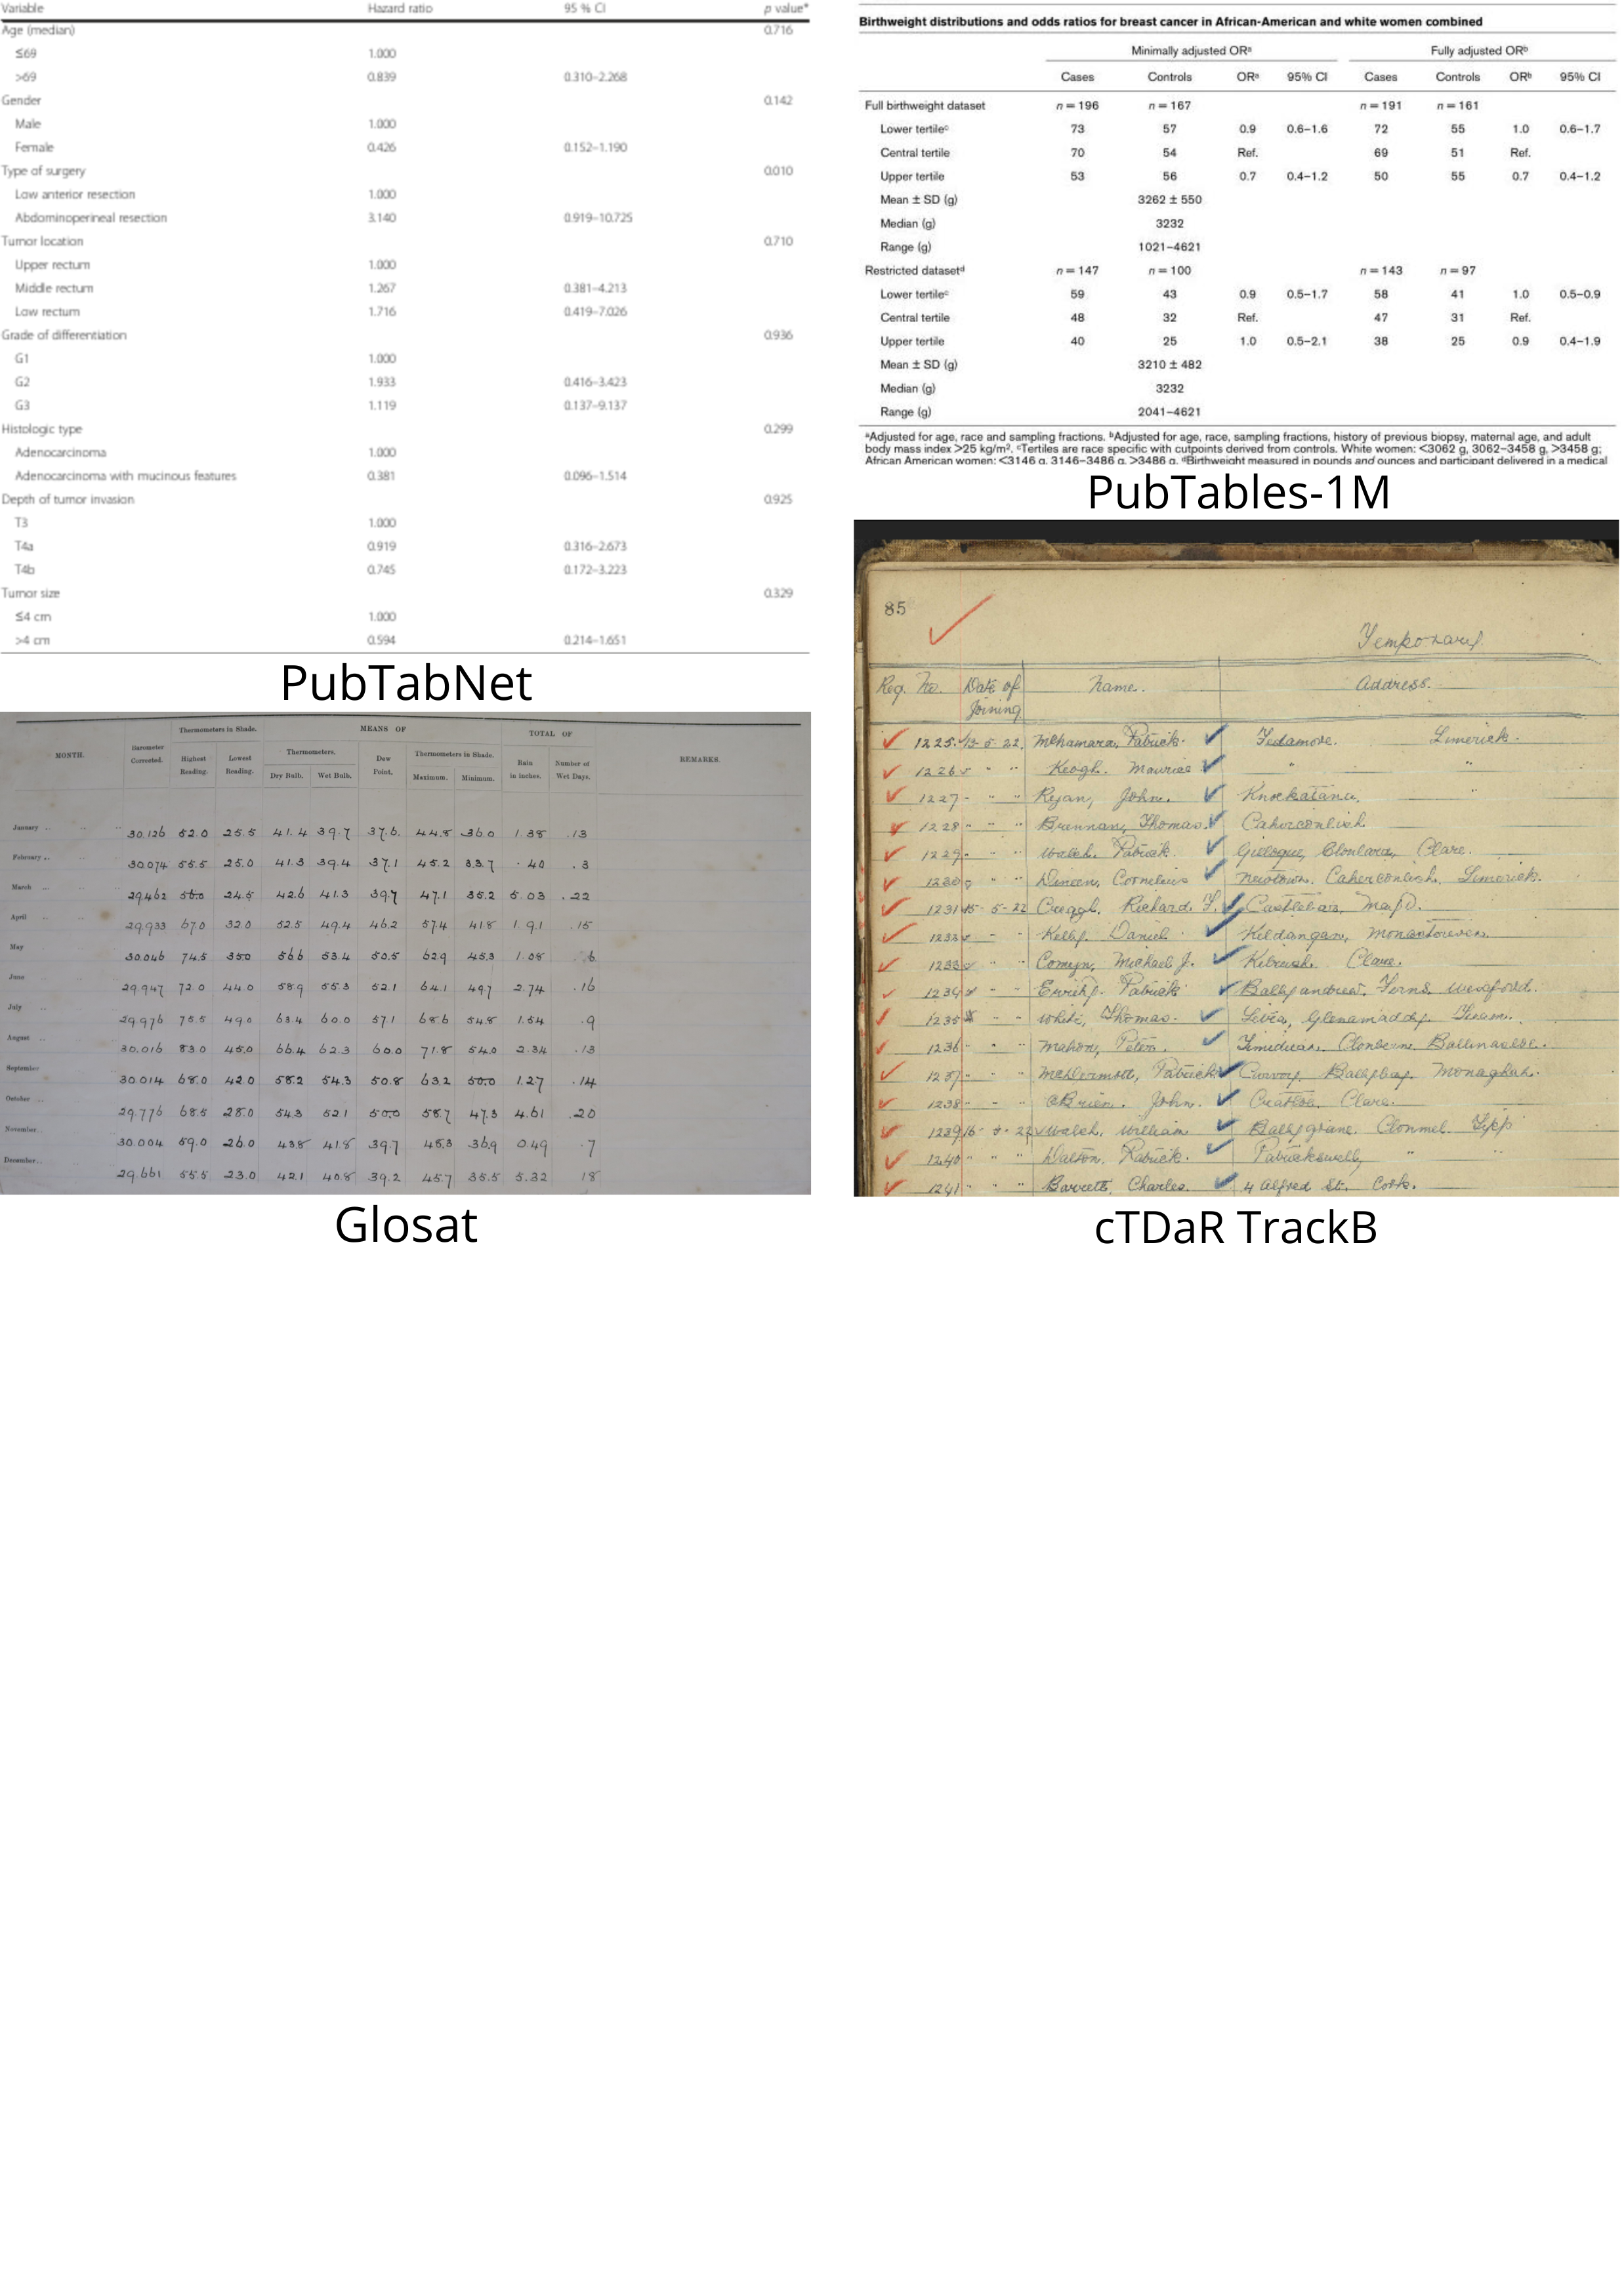 Variable Hazard ratio 95 % CI p value*
Age (median) 0.716
≤69 1.000
>69 0.839 0.310–2.268
Gender 0.142
Male 1.000
Female 0.426 0.152–1.190
Type of surgery 0.010
Low anterior resection 1.000
Abdominoperineal resection 3.140 0.919–10.725
Tumor location 0.710
Upper rectum 1.000
Middle rectum 1.267 0.381–4.213
Low rectum 1.716 0.419–7.026
Grade of differentiation 0.936
G1 1.000
G2 1.933 0.416–3.423
G3 1.119 0.137–9.137
Histologic type 0.299
Adenocarcinoma 1.000
Adenocarcinoma with mucinous features 0.381 0.096–1.514
Depth of tumor invasion 0.925
T3 1.000
T4a 0.919 0.316–2.673
T4b 0.745 0.172–3.223
Tumor size 0.329
≤4 cm 1.000
>4 cm 0.594 0.214–1.651
PubTabNet
Birthweight distributions and odds ratios for breast cancer in African-American and white women combined
Minimally adjusted ORᵃ Fully adjusted ORᵇ
Cases Controls ORᵃ 95% CI Cases Controls ORᵇ 95% CI
Full birthweight dataset n = 196 n = 167 n = 191 n = 161
Lower tertileᶜ 73 57 0.9 0.6–1.6 72 55 1.0 0.6–1.7
Central tertile 70 54 Ref. 69 51 Ref.
Upper tertile 53 56 0.7 0.4–1.2 50 55 0.7 0.4–1.2
Mean ± SD (g) 3262 ± 550
Median (g) 3232
Range (g) 1021–4621
Restricted datasetᵈ n = 147 n = 100 n = 143 n = 97
Lower tertileᶜ 59 43 0.9 0.5–1.7 58 41 1.0 0.5–0.9
Central tertile 48 32 Ref. 47 31 Ref.
Upper tertile 40 25 1.0 0.5–2.1 38 25 0.9 0.4–1.9
Mean ± SD (g) 3210 ± 482
Median (g) 3232
Range (g) 2041–4621
ᵃAdjusted for age, race and sampling fractions. ᵇAdjusted for age, race, sampling fractions, history of previous biopsy, maternal age, and adult
body mass index >25 kg/m². ᶜTertiles are race specific with cutpoints derived from controls. White women: <3062 g, 3062–3458 g, >3458 g;
African American women: <3146 g, 3146–3486 g, >3486 g. ᵈBirthweight measured in pounds and ounces and participant delivered in a medical
PubTables-1M
Thermometers in Shade. MEANS OF TOTAL OF
MONTH. Barometer Corrected. Highest Reading. Lowest Reading. Thermometers. Dry Bulb. Wet Bulb. Dew Point. Thermometers in Shade. Maximum. Minimum. Rain in inches. Number of Wet Days. REMARKS.
January 30.126 52.0 25.5 41.4 39.7 37.6 44.8 36.0 1.38 13
February 30.074 55.5 25.0 41.3 39.4 37.1 45.2 33.7 .40 3
March 29.462 56.0 24.5 42.6 41.3 39.7 47.1 35.2 5.03 22
April 29.933 67.0 32.0 52.5 49.4 46.2 57.4 41.8 1.91 15
May 30.046 74.5 35.0 56.6 53.4 50.5 62.9 45.3 1.08 6
June 29.947 72.0 44.0 58.9 55.3 52.1 64.1 49.7 2.74 16
July 29.976 75.5 49.0 63.4 60.0 57.1 68.6 54.8 1.54 9
August 30.016 83.0 45.0 66.4 62.3 60.0 71.8 54.0 2.34 13
September 30.014 68.0 42.0 58.2 54.3 50.8 63.2 50.0 1.27 14
October 29.776 68.5 28.0 54.3 52.1 50.0 58.7 47.3 4.61 20
November 30.004 59.0 26.0 43.8 41.8 39.7 45.3 36.9 0.49 7
December 29.661 55.5 23.0 42.1 40.8 39.2 45.7 35.5 5.32 18
Glosat
85
Temporary.
Reg. No. Date of Joining Name. Address.
1225. 13 5 22. McNamara, Patrick. Fedamore. Limerick.
1226 " " Keogh. Maurice " "
1227 " " Ryan, John.
1228 " " Brennan, Thomas. Caherconlish
1229 " " Walsh. Patrick. Clonlara, Clare.
1230 " " Cornelius Newtown. Caherconlish. Limerick.
1231 15 5-22 Creagh. Richard. Castlebar, Mayo.
Kelly. Daniel Kildangan,
1233 " " Comyn, Michael J. Kilrush. Clare.
1234 " " Patrick Ballyandrew. Ferns. Wexford.
1235 " " White, Thomas. Glenamaddy.
1236 " " Mahon, Peter.
1237 " " McDermott, Patrick Ballybay. Monaghan.
1238 " " O'Brien. John. Cratloe. Clare.
1239 16 5 22 Walsh. William Clonmel. Tipp
1240 " " Patrick. Patrickswell, " "
1241 " " Barrett, Charles. 4 Alfred St. Cork.
cTDaR TrackB